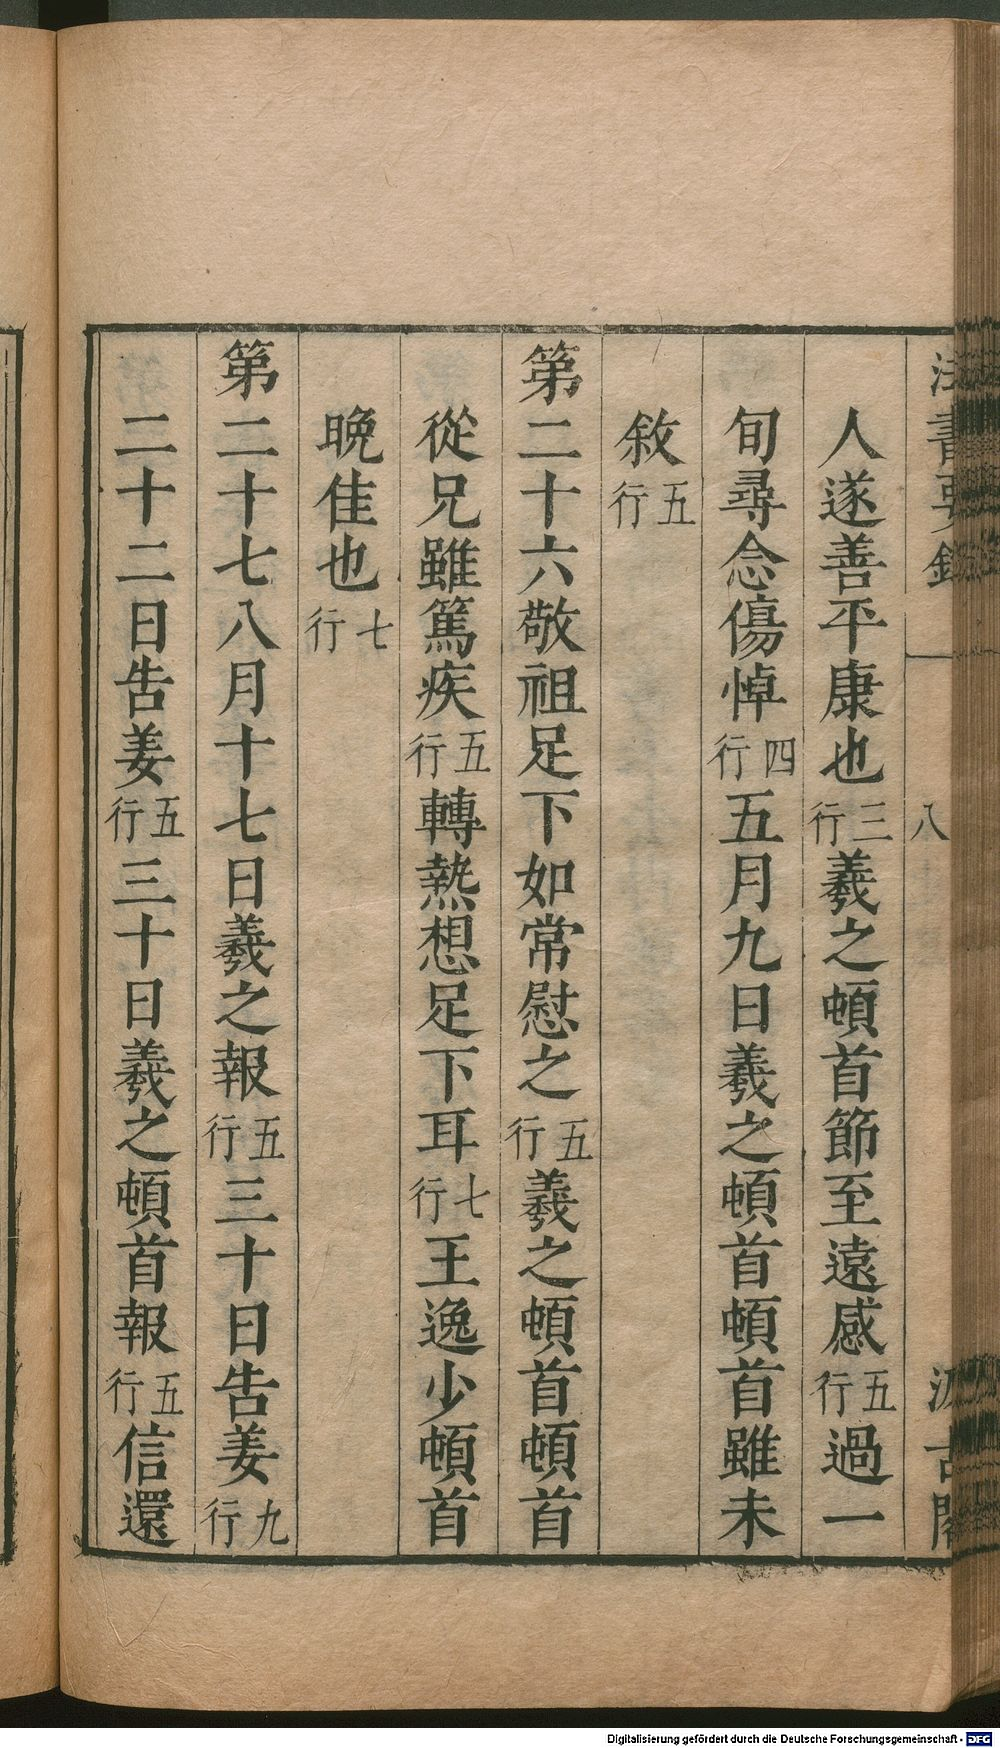 法書要錄 八 汲古閣
人遂善平康也三行羲之頓首節至遠感五行過一
旬尋念傷悼四行五月九日羲之頓首頓首雖未
敘五行
第二十六敬祖足下如常慰之五行羲之頓首頓首
從兄雖篤疾五行轉熱想足下耳七行王逸少頓首
晚佳也七行
第二十七八月十七日羲之報五行三十日告姜九行
二十二日告姜五行三十日羲之頓首報五行信還
Digitalisierung gefördert durch die Deutsche Forschungsgemeinschaft - DFG